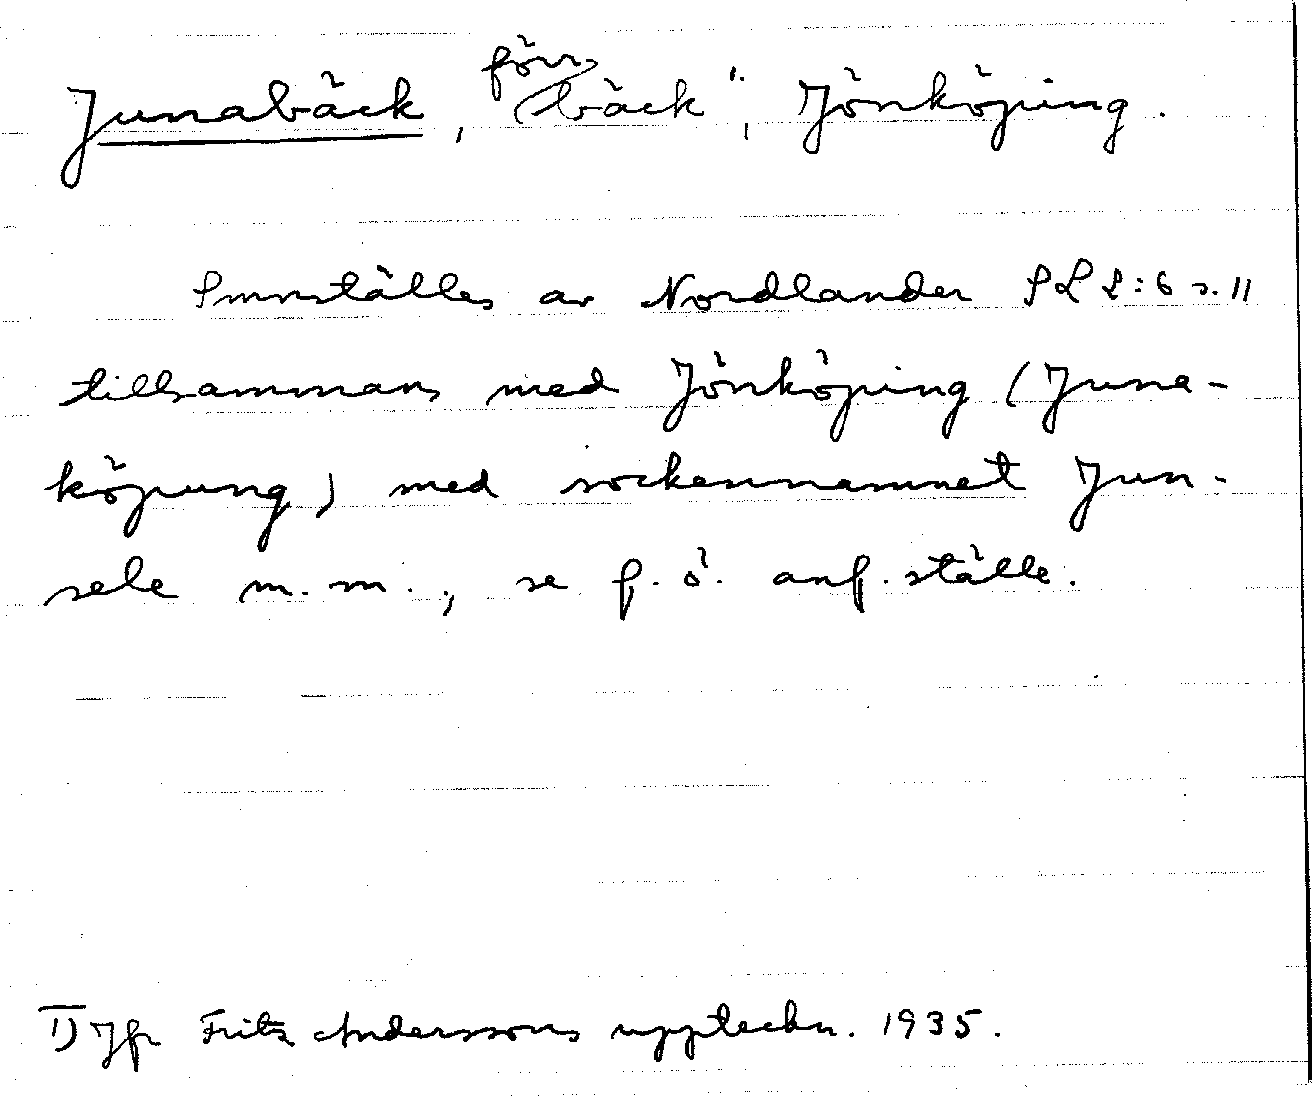 Junabäck, förr bäck¹⁾, Jönköping.
Smnställes av Nordlander SL 2:6 s. 11
tillsammans med Jönköping (Juna-
köpung) med sockennamnet Jun-
sele m.m., se f. ö. anf. ställe.
1) Jfr Fritz Anderssons uppteckn. 1935.